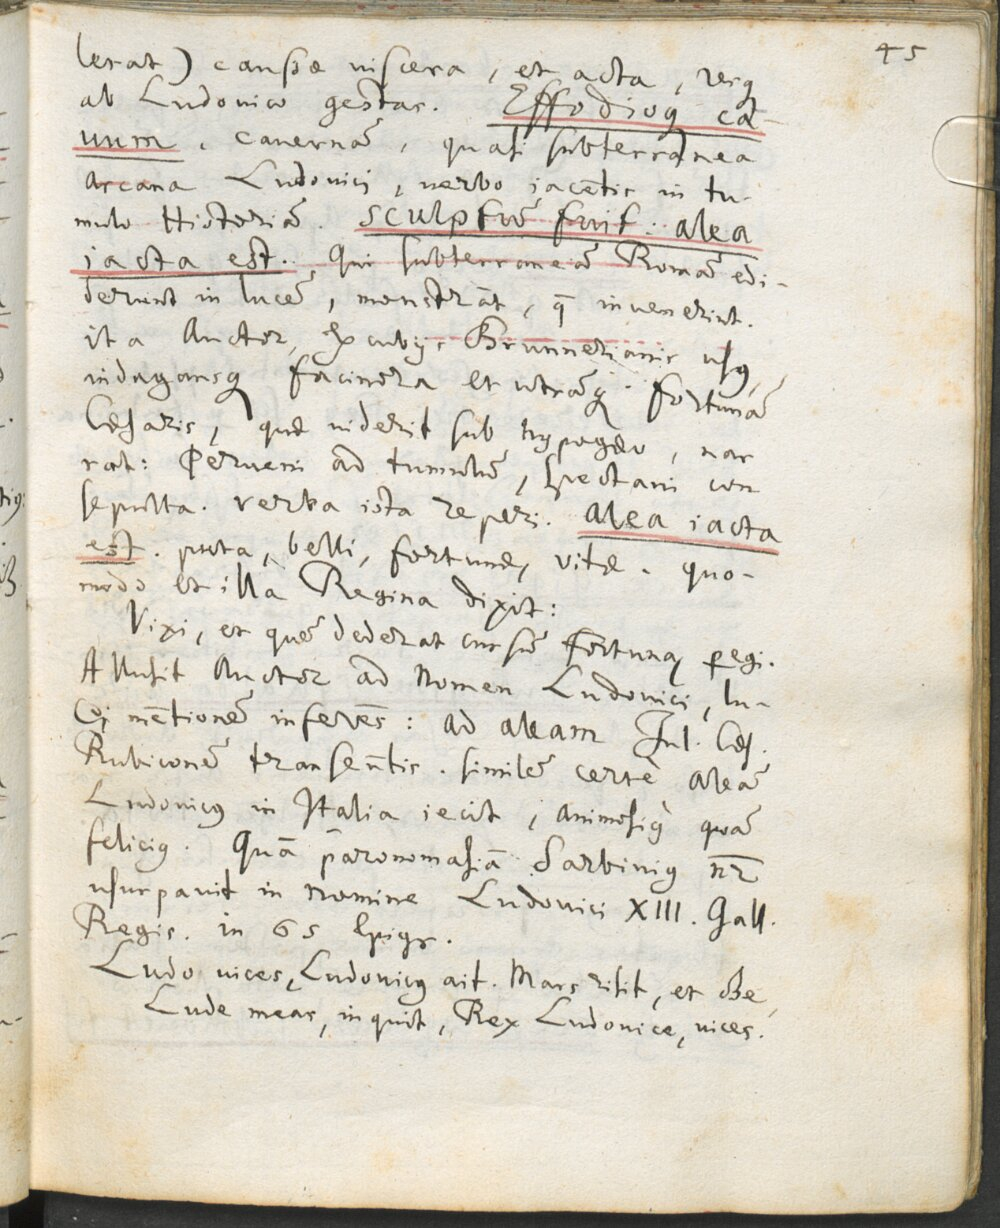 45
lerat) caussæ viscera, et acta, resq
ab Ludovico gestas. Effodioq ca-
uum. cauernā, quasi subterranea
arcana Ludovici, verbo iacētis in tu-
mulo Historiā. sculptū fuit: alea
iacta est. Qui subterraneā Romā edi-
derunt in lucē, monstrāt, q̄ invenerint.
ita Auctor, Excubijs Brunnerianis usq,
indagansq facinora et utrāq fortunā
Cæsaris, quæ viderit sub hypogæo, nar
rat: Perveni ad tumulū, spectavi con
sepulta. verba ista reperi. alea iacta
est. puta, belli, fortunæ, vitæ. quo-
modo et illa Regina dixit:
Vixi, et quē dederat cursū fortuna, pegi.
Allusit Auctor ad Nomen Ludovici, lu-
mētionē inferēs: ad aleam Jul. Cæs.
Rubiconē transeūtis. similē certè aleā
Ludovicq in Italia iecit, animosiq quā
feliciq. Quā paronomasiā Sarbiniq nr̄
usurpavit in nomine Ludovici XIII. Gall.
Regis. in 65 Epigr.
Ludo vices, Ludovicq ait. Mars risit, et
Lude meas, inquit, Rex Ludovice, vices.